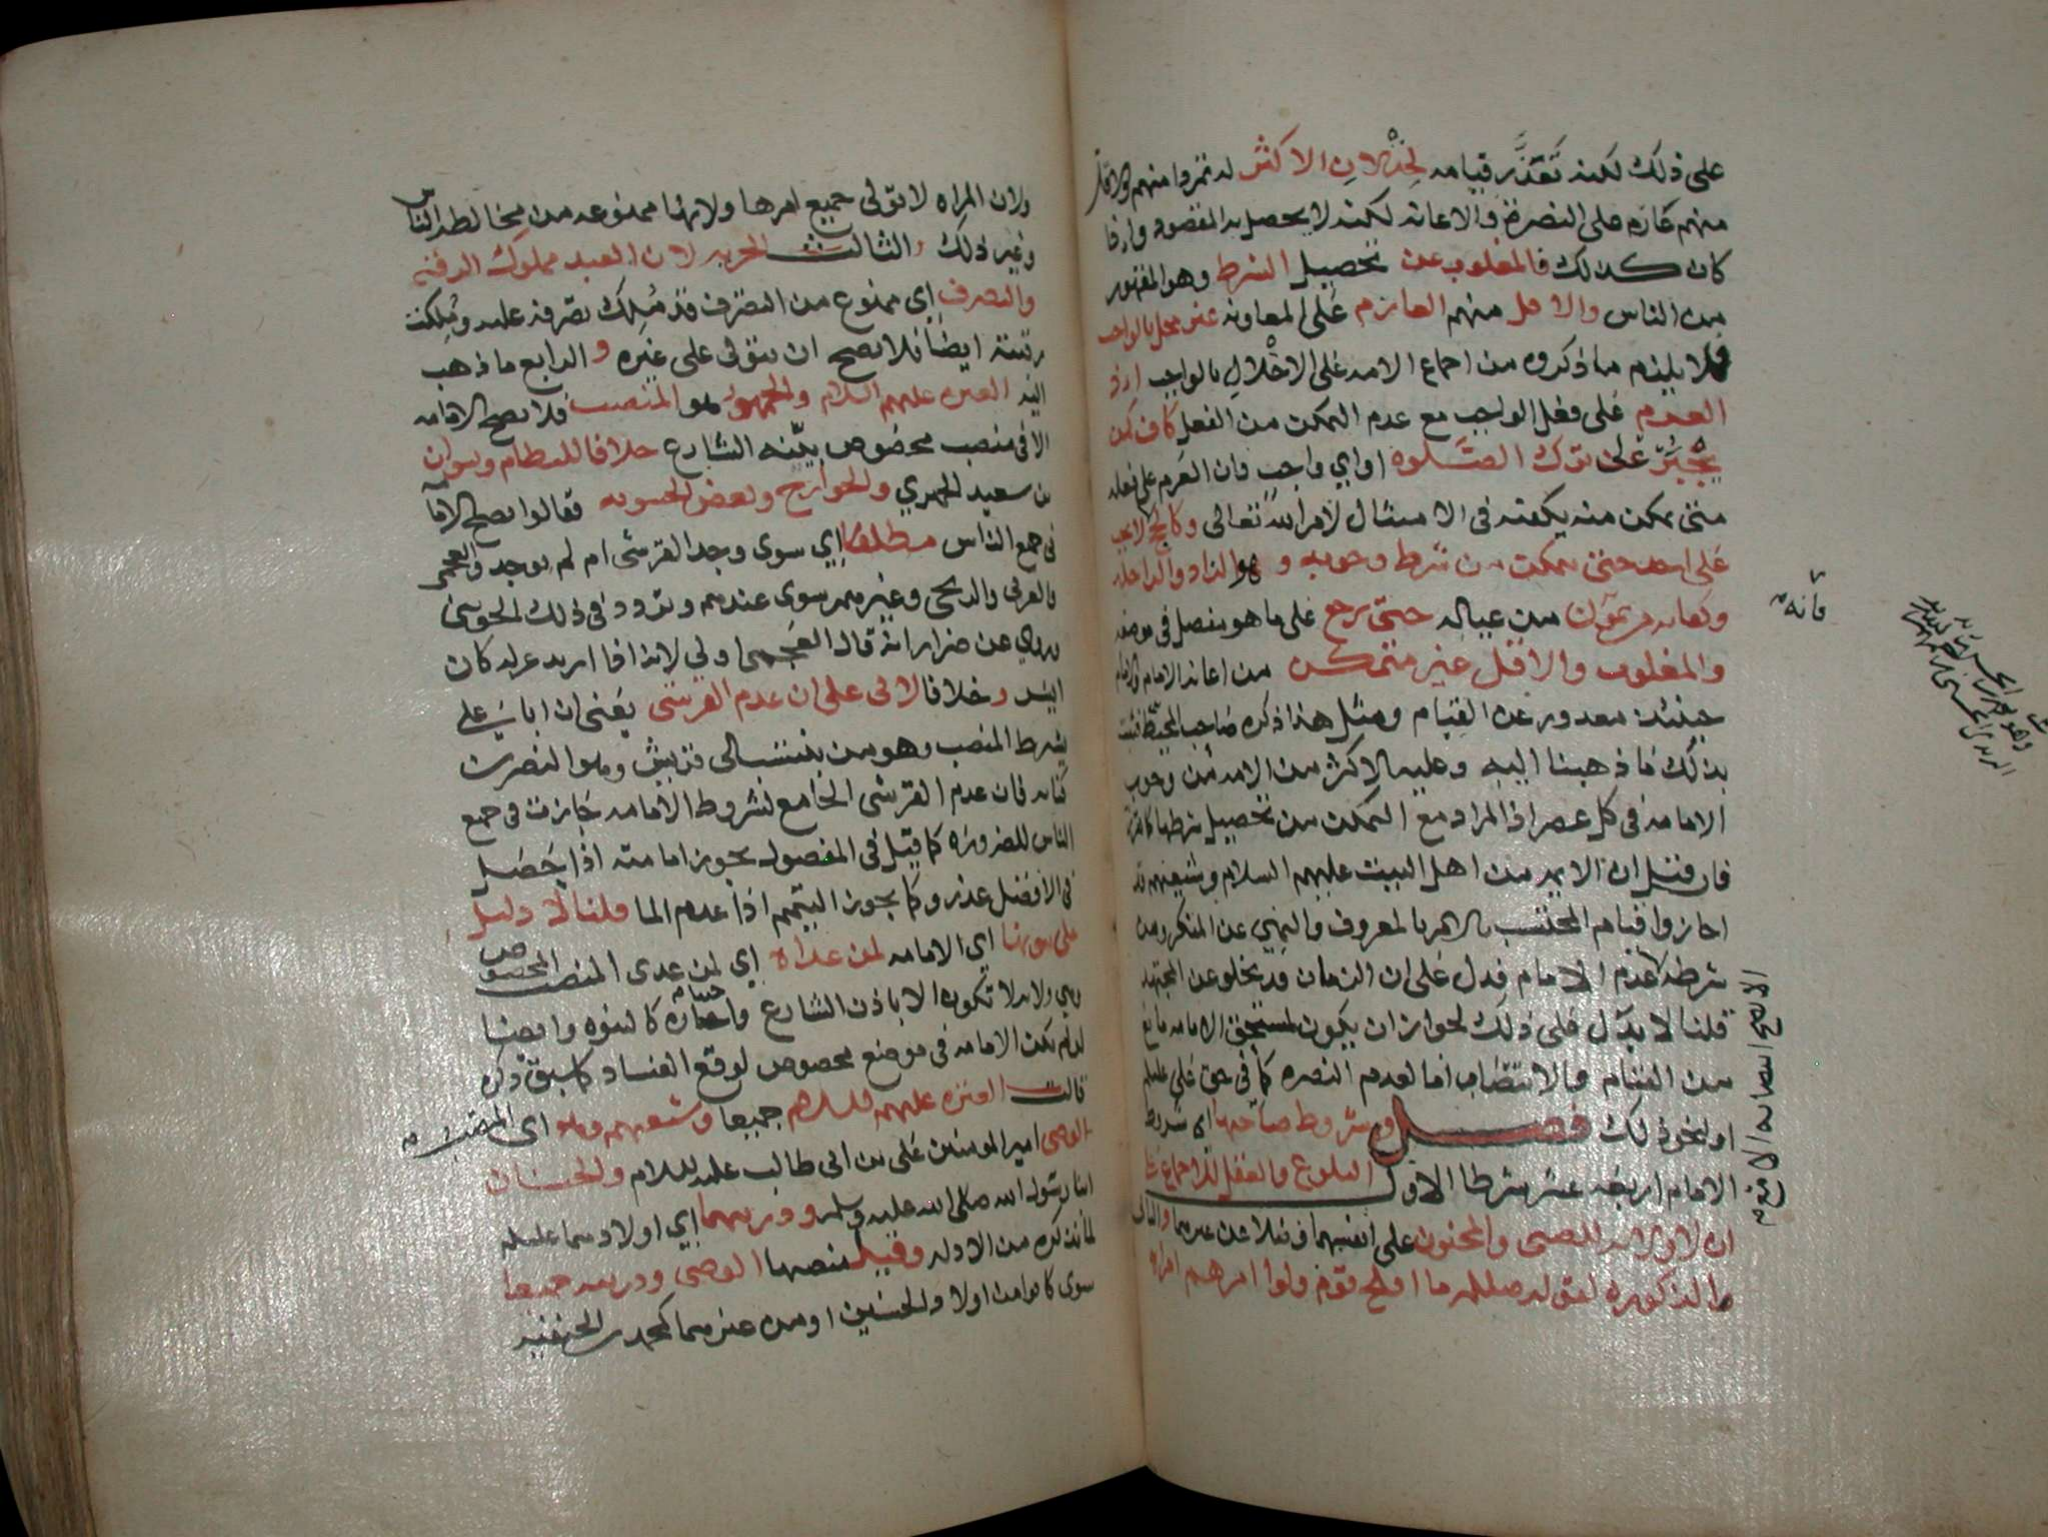 على ذلك لكنه تعذر قيامه لخذلان الاكثر له تمردا منهم والاقل
منهم عازم على النصرة والاعانة لكنه لا يحصل به المقصود واذا
كان كذلك فالمغلوب عن تحصيل الشرط وهو المقهور
من الناس والاقل منهم العازم على المعاونه غير مخل بالواجب
فلا يلزم ما ذكروه من اجماع الامه على الاخلال بالواجب اذ
العزم على فعل الواجب مع عدم التمكن من الفعل كاف كمن
يجبر على ترك الصلوه او اي واجب فان العزم على فعله
متى تمكن منه يكفيه في الامتثال لامر الله تعالى وكالحج لا يجب
على احد حتى يتمكن من شرط وجوبه وهو الزاد والراحله
وكفايه من يمون من عياله حتى يرجع على ما هو مفصل في موضعه
والمغلوب والاقل غير متمكن من اعانة الامام والامام
حينئذ معذور عن القيام ومثل هذا ذكره صاحب المحيط فثبت
بذلك ما ذهبنا اليه وعليه الاكثر من الامه من وجوب
الامامه في كل عصر اذ المراد مع التمكن من تحصيل شرطها
فان قيل ان الايمه من اهل البيت عليهم السلام وشيعتهم قد
اجازوا قيام المحتسب بالامر بالمعروف والنهي عن المنكر ومن
شرطه عدم الامام فدل على ان الزمان قد يخلو عن المجتهد
قلنا لا يدل على ذلك لجواز ان يكون لمستحق الامامه مانع
من القيام والانتصاب اما لعدم النصره كما في حق علي عليلم
او لنحو ذلك فصل وشروط صاحبها اي شروط
الامام اربعة عشر شرطا الاول البلوغ والعقل للاجماع على
ان لا ولاية للصبي والمجنون على انفسهما فضلا عن غيرهما والثاني
الذكوره لقوله صللم ما افلح قوم ولوا امرهم امراه
فانه
ولان المراه لا تولى جميع امرها ولانها ممنوعه من مخالطة الناس
وغير ذلك والثالث الحريه لان العبد مملوك الرقبة
والتصرف اي ممنوع من التصرف قد مُلك تصرفه عليه ومُلكت
رقبته ايضا فلا يصح ان يتولى على غيره والرابع ما ذهب
اليه العتره عليهم السلام والجمهور وهو المنصب فلا تصح الامامه
الا في منصب مخصوص بيّنه الشارع خلافا للنظام ونشوان
بن سعيد الحميري والخوارج وبعض الحشويه فقالوا تصح الامامه
في جميع الناس مطلقا اي سوى وجد القرشي ام لم يوجد والعجمي
والعربي والزنجي وغيرهم سوى عندهم وتردد في ذلك الجويني
وروي عن ضرار انه قال العجمي اولى لانه اذا اريد عزله كان
ايسر وخلافا لابي علي ان عدم القرشي يعني ان ابا علي
يشرط المنصب وهو من ينتسب الى قريش وهو النضر بن
كنانه فان عدم القرشي الجامع لشروط الامامه جازت في جميع
الناس للضروره كما قيل في المفضول يجوز امامته اذا حصل
في الافضل عذر وكما يجوز التيمم اذا عدم الما قلنا لا دليل
على ثبوتها اي الامامه لمن عداه اي لمن عدى المنصب المخصوص
وهي ولايه لا تكون الا باذن الشارع واختياره كالنبوه وايضا
لو لم تكن الامامه في موضع مخصوص لوقع الفساد كما سبق ذكره
قالت العتره عليهم السلام جميعا وشيعتهم وهو اي المنصب
الوصي امير المومنين علي بن ابي طالب عليه السلام والحسنان
ابنا رسول الله صلى الله عليه وسلم وذريتهما اي اولادهما عليلم
لما نذكره من الادله وقيل منصبها الوصي وذريته جميعا
سوى كانوا من اولاد الحسنين او من غيرهما كمحمد بن الحنفيه